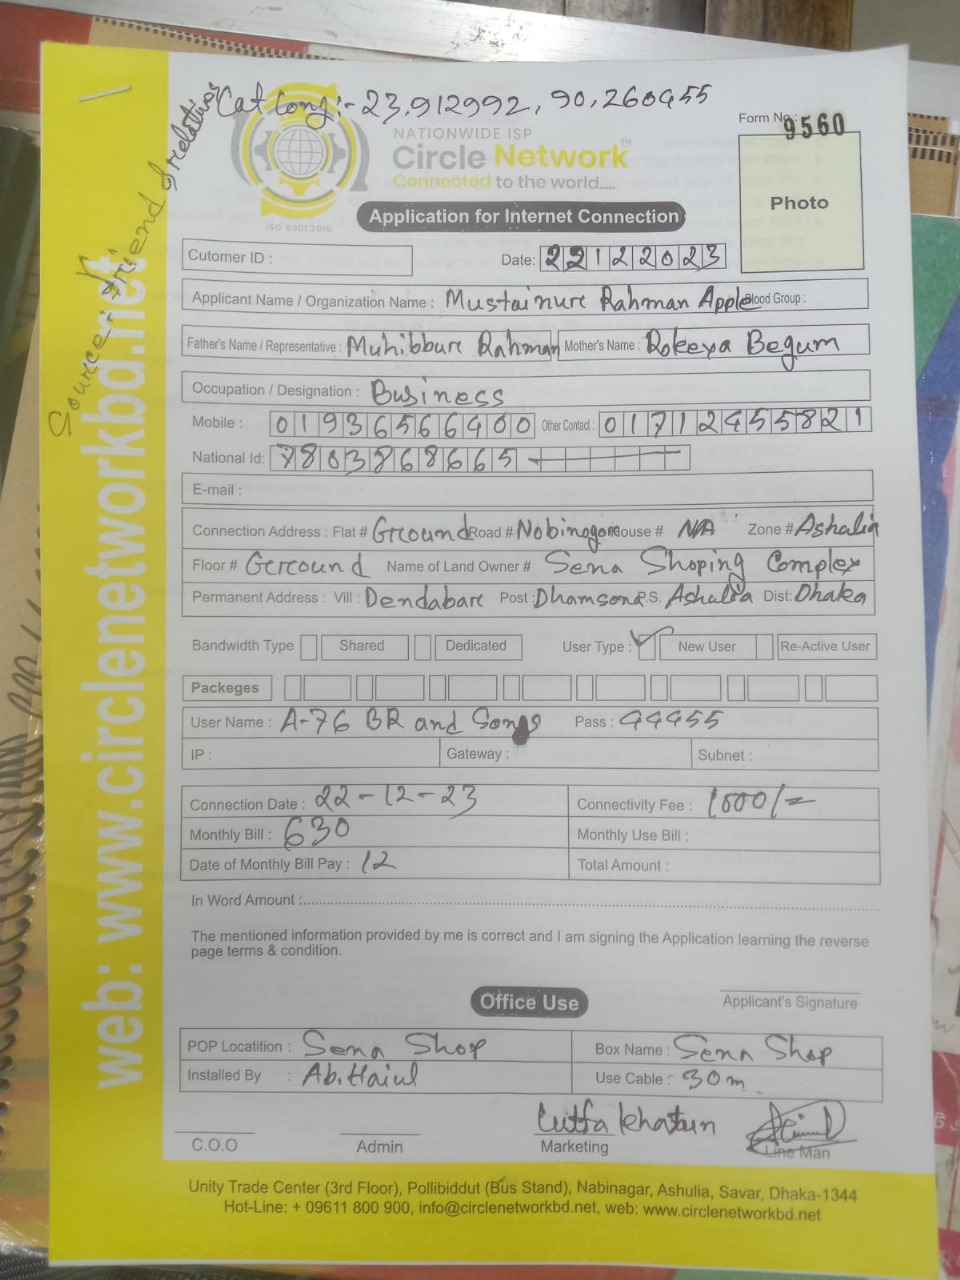 Cat Long:- 23.912992, 90.260455
Source:- friend & relatives
NATIONWIDE ISP
Circle Network
Connected to the world.....
ISO 9001:2015
Form No.: 9560
Photo
Application for Internet Connection
Cutomer ID :
Date: 22122023
Applicant Name / Organization Name : Mustainure Rahman Apple Blood Group :
Father's Name / Representative : Muhibbure Rahman Mother's Name : Rokeya Begum
Occupation / Designation : Business
Mobile : 01936566400 Other Contact : 01712455821
National Id: 7803868665
E-mail :
Connection Address : Flat # Grcound Road # Nobinogor House # N/A Zone # Ashalia
Floor # Grcound Name of Land Owner # Sena Shoping Complex
Permanent Address : Vill : Dendabare Post : Dhamsona P.S. Ashalia Dist: Dhaka
Bandwidth Type Shared Dedicated User Type : New User Re-Active User
Packeges
User Name : A-76 BR and Sons Pass : 44455
IP : Gateway : Subnet :
Connection Date : 22-12-23 Connectivity Fee : 1000/=
Monthly Bill : 630 Monthly Use Bill :
Date of Monthly Bill Pay : 12 Total Amount :
In Word Amount :
The mentioned information provided by me is correct and I am signing the Application learning the reverse
page terms & condition.
Office Use
Applicant's Signature
POP Locatition : Sena Shop Box Name : Senn Shop
Installed By : Ab. Haiul Use Cable : 30m
Lutfa khatun
C.O.O Admin Marketing Line Man
Unity Trade Center (3rd Floor), Pollibiddut (Bus Stand), Nabinagar, Ashulia, Savar, Dhaka-1344
Hot-Line: + 09611 800 900, info@circlenetworkbd.net, web: www.circlenetworkbd.net
web: www.circlenetworkbd.net